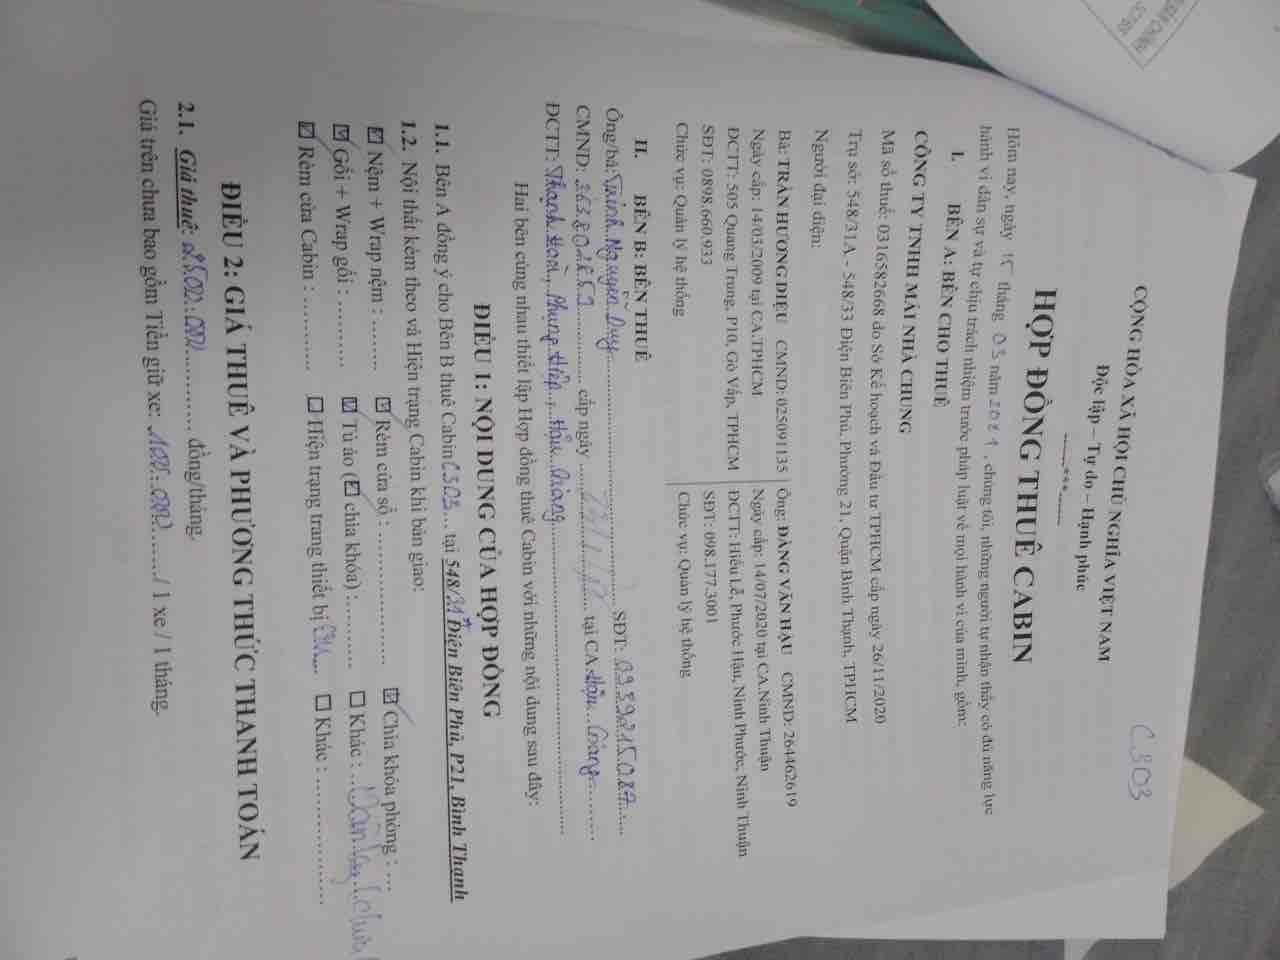 C303
CỘNG HÒA XÃ HỘI CHỦ NGHĨA VIỆT NAM
Độc lập – Tự do – Hạnh phúc
-----***-----
HỢP ĐỒNG THUÊ CABIN
Hôm nay, ngày 15 tháng 03 năm 2021, chúng tôi, những người tự nhận thấy có đủ năng lực
hành vi dân sự và tự chịu trách nhiệm trước pháp luật về mọi hành vi của mình, gồm:
I. BÊN A: BÊN CHO THUÊ
CÔNG TY TNHH MÁI NHÀ CHUNG
Mã số thuế: 0316582668 do Sở Kế hoạch và Đầu tư TPHCM cấp ngày 26/11/2020
Trụ sở: 548/31A - 548/33 Điện Biên Phủ, Phường 21, Quận Bình Thạnh, TPHCM
Người đại diện:
Bà: TRẦN HƯƠNG DIỆU CMND: 025091135
Ngày cấp: 14/03/2009 tại CA.TPHCM
ĐCTT: 505 Quang Trung, P10, Gò Vấp, TPHCM
SĐT: 0898.660.933
Chức vụ: Quản lý hệ thống
Ông: ĐÀNG VĂN HẬU CMND: 264462619
Ngày cấp: 14/07/2020 tại CA.Ninh Thuận
ĐCTT: Hiếu Lễ, Phước Hậu, Ninh Phước, Ninh Thuận
SĐT: 098.177.3001
Chức vụ: Quản lý hệ thống
II. BÊN B: BÊN THUÊ
Ông/bà: Trịnh Nguyễn Duy SĐT: 0939215087
CMND: 363802653 cấp ngày tại CA Hậu Giang
ĐCTT: Thạnh Hoà, Phụng Hiệp, Hậu Giang
Hai bên cùng nhau thiết lập Hợp đồng thuê Cabin với những nội dung sau đây:
ĐIỀU 1: NỘI DUNG CỦA HỢP ĐỒNG
1.1. Bên A đồng ý cho Bên B thuê Cabin C303 tại 548/31A Điện Biên Phủ, P21, Bình Thạnh
1.2. Nội thất kèm theo và Hiện trạng Cabin khi bàn giao:
☑ Nệm + Wrap nệm : ........ ☑ Rèm cửa sổ : .................... ☑ Chìa khóa phòng : ...
☑ Gối + Wrap gối : ......... ☑ Tủ áo (☑ chìa khóa) : .......... ☐ Khác : ... Vân tay
☑ Rèm cửa Cabin : ........... ☐ Hiện trạng trang thiết bị ☐ Khác : ....................
ĐIỀU 2: GIÁ THUÊ VÀ PHƯƠNG THỨC THANH TOÁN
2.1. Giá thuê: đồng/tháng.
Giá trên chưa bao gồm Tiền giữ xe: / 1 xe / 1 tháng.